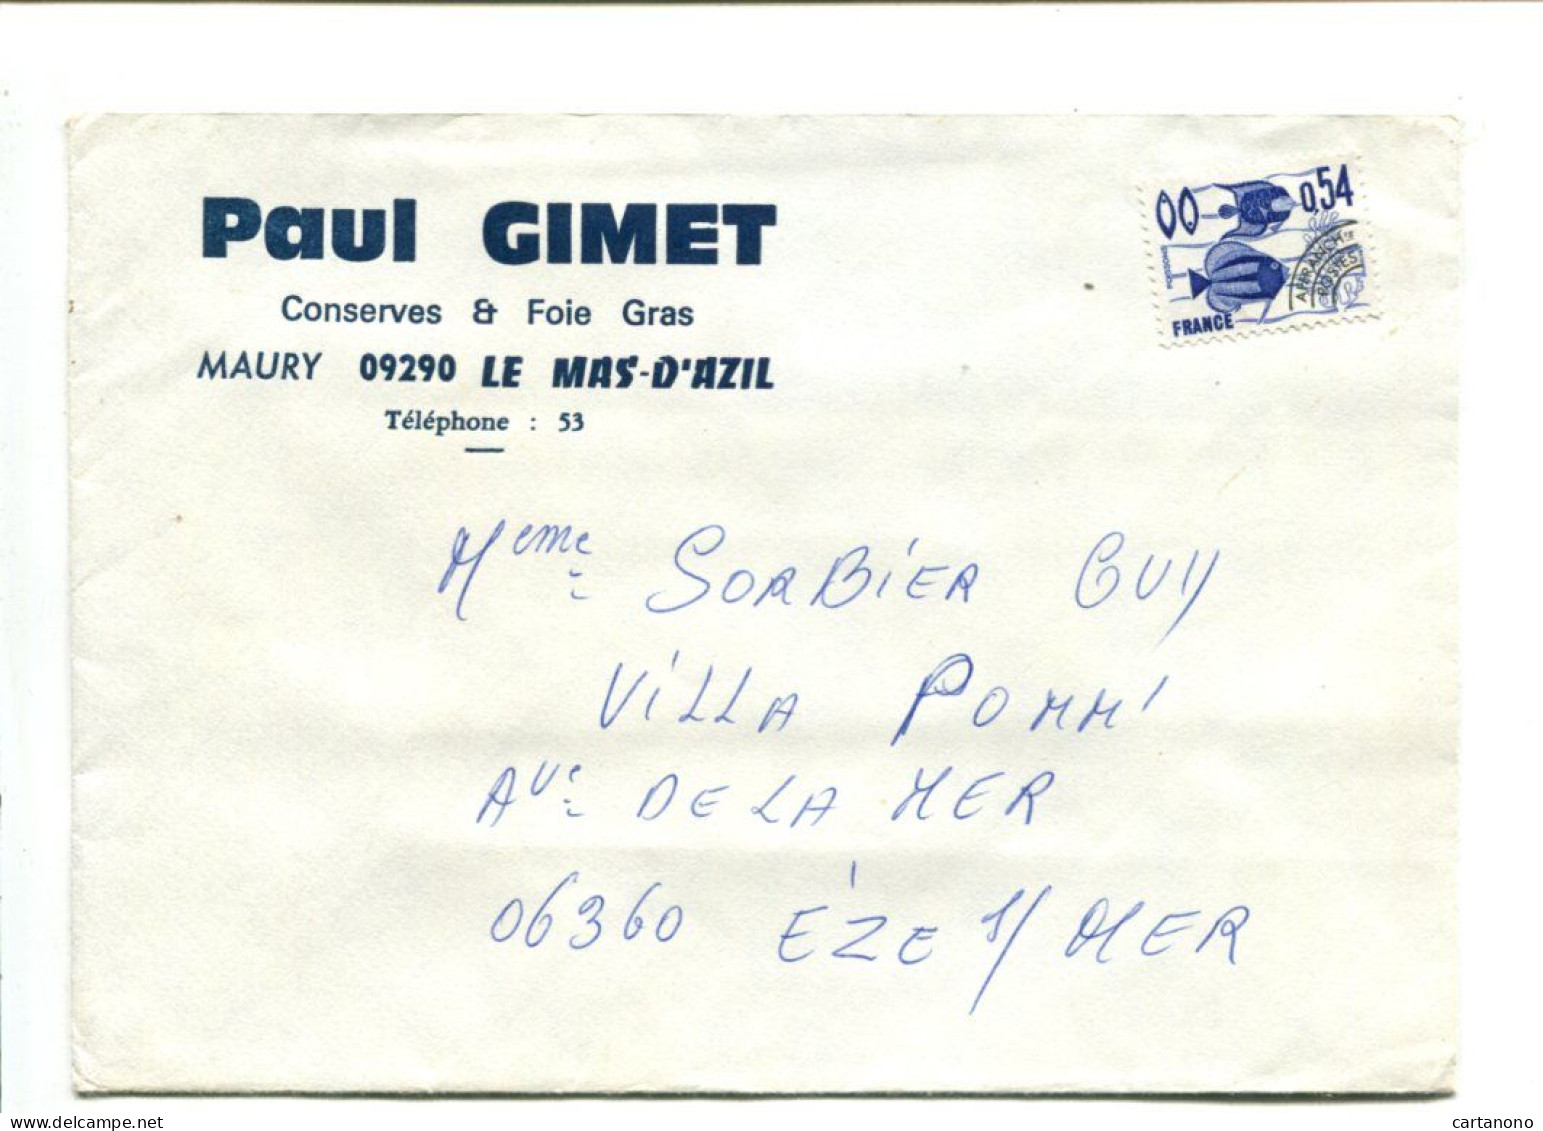 Paul GIMET
Conserves & Foie Gras
MAURY 09290 LE MAS-D'AZIL
Téléphone : 53
0,54
POISSONS
AFFRANCHts
POSTES
FRANCE
Meme SORBIER GUY
VILLA POMM'
AVe DE LA MER
06360 ÈZE S/ MER
www.delcampe.net
cartanono